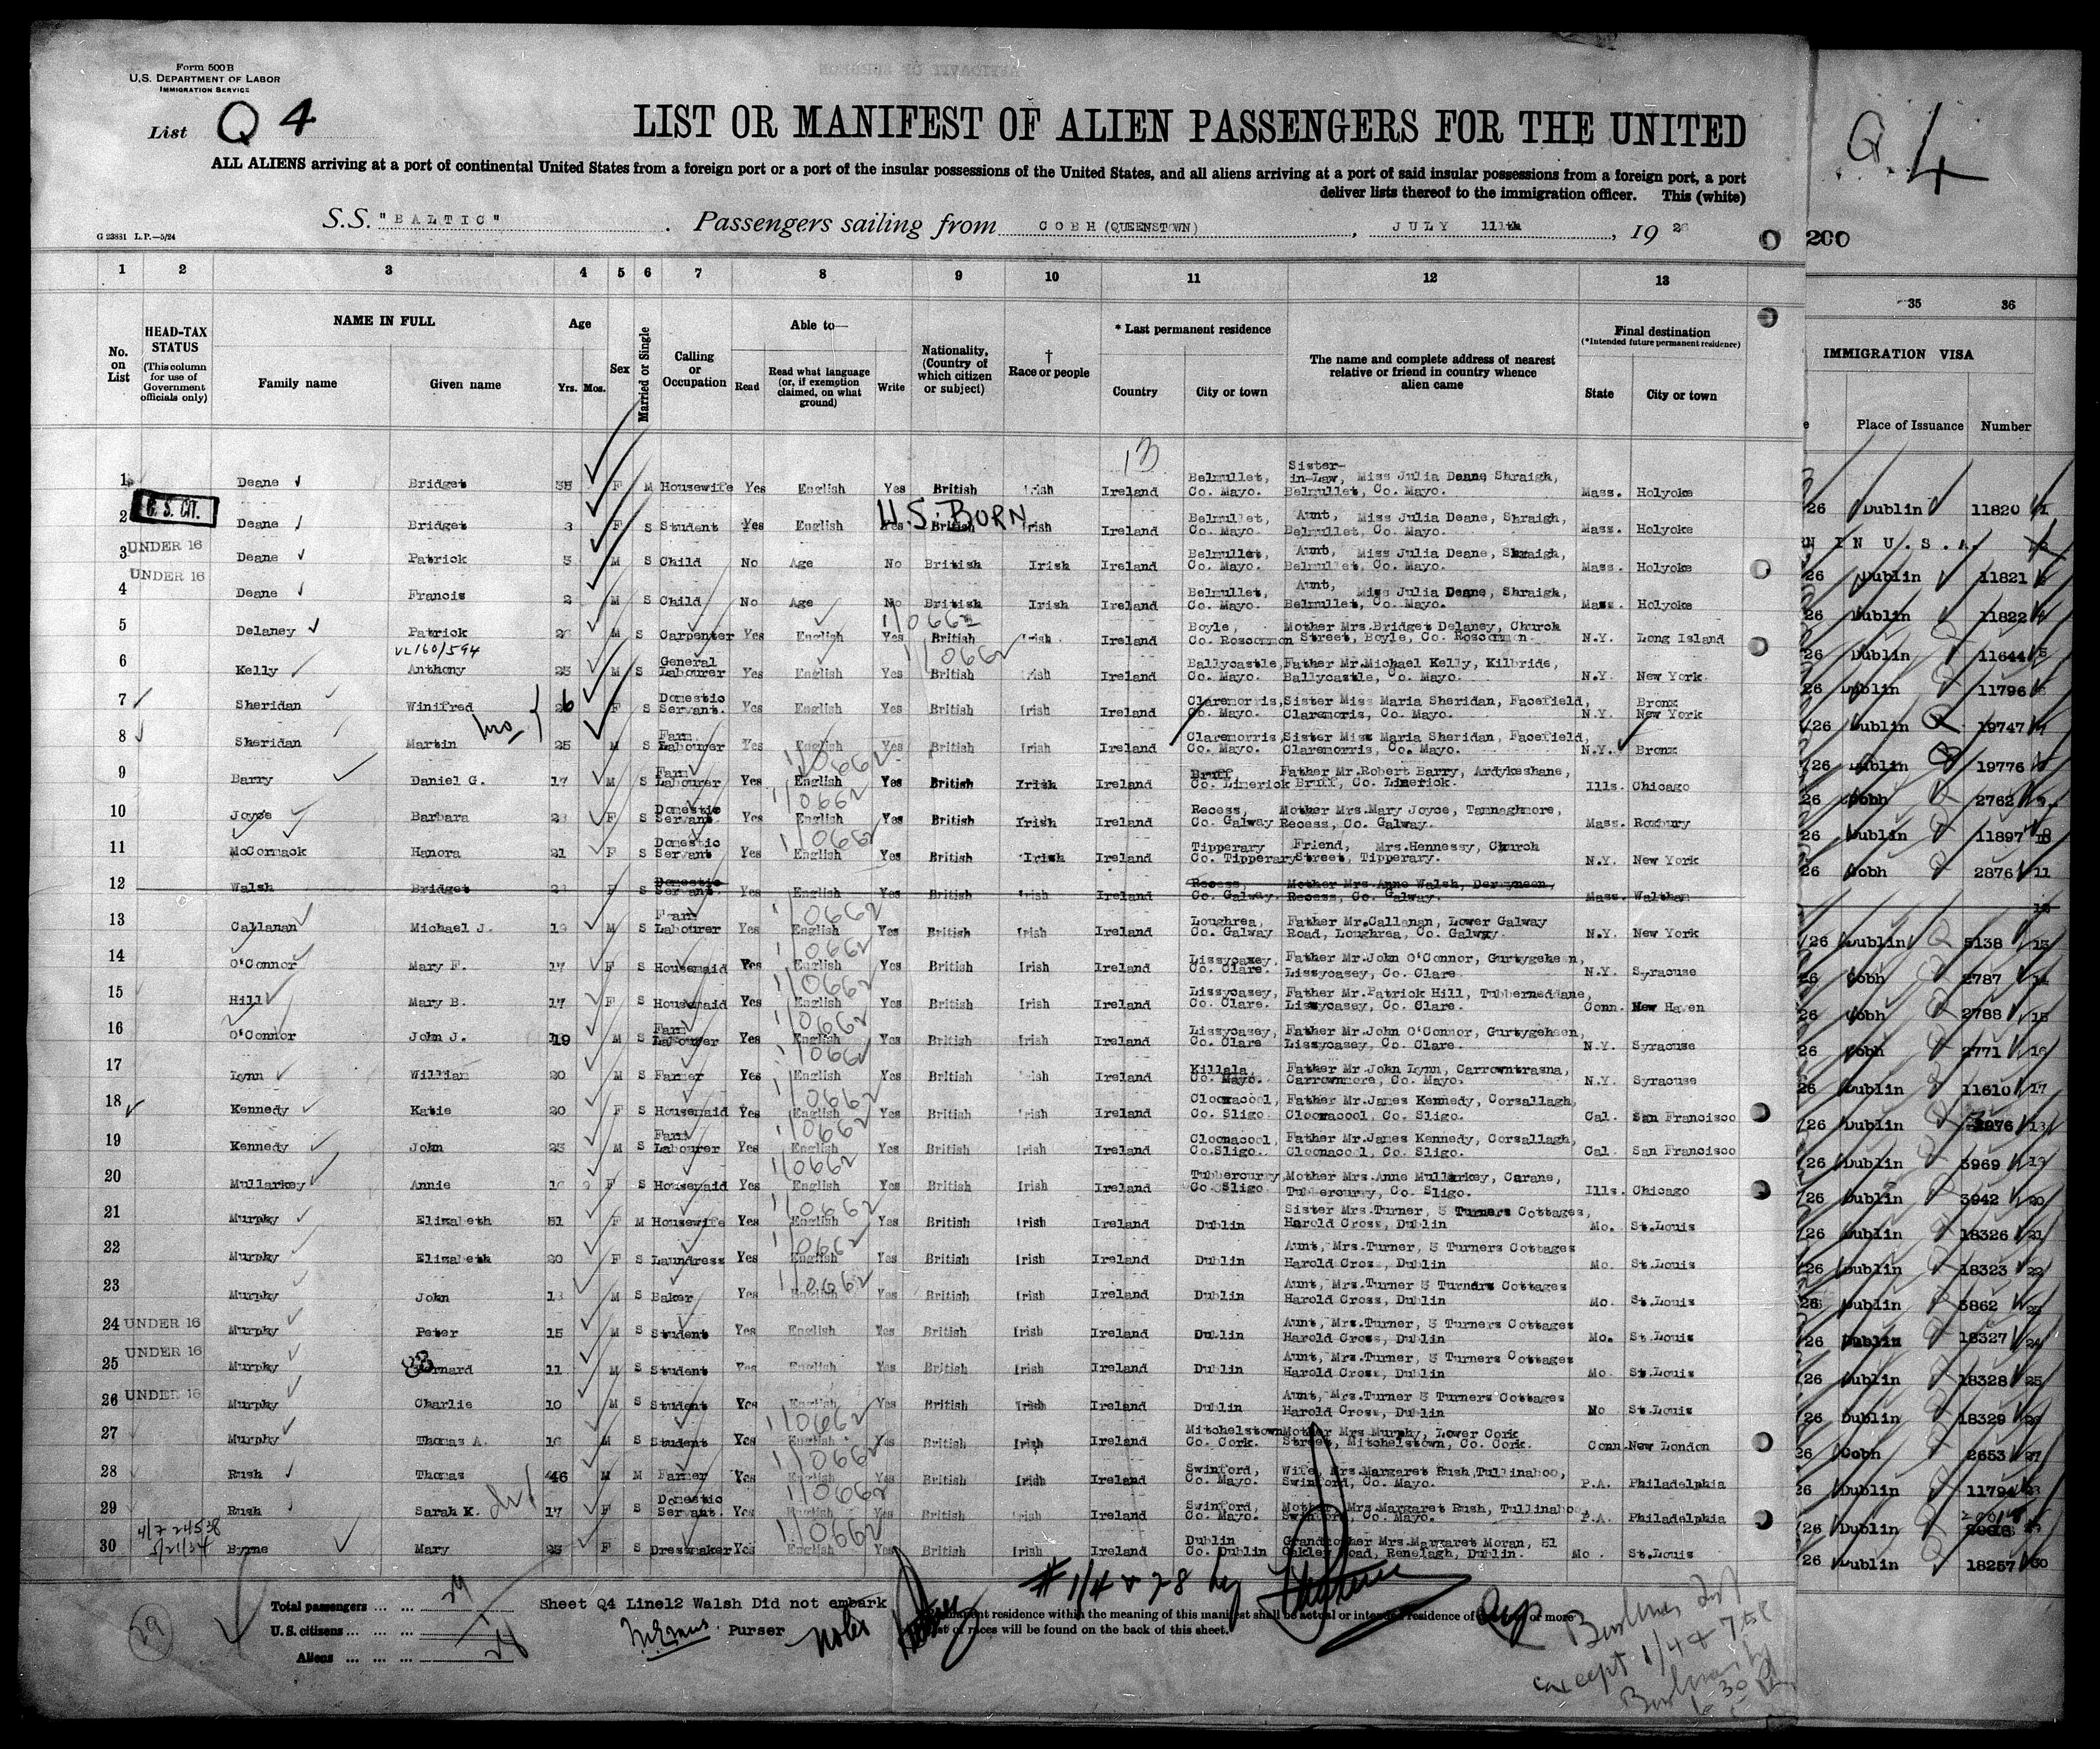 Form 500B
U.S. DEPARTMENT OF LABOR
IMMIGRATION SERVICE
List Q 4
LIST OR MANIFEST OF ALIEN PASSENGERS FOR THE UNITED
ALL ALIENS arriving at a port of continental United States from a foreign port or a port of the insular possessions of the United States, and all aliens arriving at a port of said insular possessions from a foreign port, a port
deliver lists thereof to the immigration officer. This (white)
S.S. "BALTIC". Passengers sailing from COBH (QUEENSTOWN), JULY 11th, 19 26
G 23831 L.P.—5/24
Q. 4
200
1 2 3 4 5 6 7 8 9 10 11 12 13
35 36
No. on List
HEAD-TAX STATUS (This column for use of Government officials only)
NAME IN FULL
Family name Given name
Age Yrs. Mos.
Sex
Married or Single
Calling or Occupation
Able to—
Read Read what language (or, if exemption claimed, on what ground) Write
Nationality, (Country of which citizen or subject)
† Race or people
* Last permanent residence
Country City or town
The name and complete address of nearest relative or friend in country whence alien came
Final destination (*Intended future permanent residence)
State City or town
IMMIGRATION VISA
Place of Issuance Number
13
1 Deane Bridget F M Housewife Yes English Yes British Irish Ireland Belmullet, Co. Mayo. Sister-in-Law, Miss Julia Deane Shraigh, Belmullet, Co. Mayo. Mass. Holyoke 26 Dublin 11820 1
U. S. CIT.
U.S. BORN
2 Deane Bridget 3 F S Student Yes English Yes British Irish Ireland Belmullet, Co. Mayo. Aunt, Miss Julia Deane, Shraigh, Belmullet, Co. Mayo. Mass. Holyoke IN U.S.A.
UNDER 16
3 Deane Patrick 5 M S Child No Age No British Irish Ireland Belmullet, Co. Mayo. Aunt, Miss Julia Deane, Shraigh, Belmullet, Co. Mayo. Mass. Holyoke 26 Dublin 11821
UNDER 16
4 Deane Francis 2 M S Child No Age No British Irish Ireland Belmullet, Co. Mayo. Aunt, Miss Julia Deane, Shraigh, Belmullet, Co. Mayo. Mass. Holyoke 26 Dublin 11822 4
1/0662
5 Delaney Patrick M S Carpenter Yes English Yes British Irish Ireland Boyle, Co. Roscommon Mother Mrs.Bridget Delaney, Church Street, Boyle, Co. Roscommon. N.Y. Long Island 26 Dublin 11644 5
VL160/594 1/0662
6 Kelly Anthony M S General Labourer Yes English Yes British Irish Ireland Ballycastle, Co. Mayo. Father Mr.Michael Kelly, Kilbride, Ballycastle, Co. Mayo. N.Y. New York 26 Dublin 11796
7 Sheridan Winifred 26 F S Domestic Servant. Yes English Yes British Irish Ireland Claremorris, Co. Mayo. Sister Miss Maria Sheridan, Facefield, Claremoris, Co. Mayo. N.Y. Bronx New York 26 Dublin 19747
8 Sheridan Martin 25 M S Farm Labourer Yes English Yes British Irish Ireland Claremorris, Co. Mayo. Sister Miss Maria Sheridan, Facefield, Claremorris, Co. Mayo. N.Y. Bronx Dublin 19776
1/0662
9 Barry Daniel G. 17 M S Farm Labourer Yes English Yes British Irish Ireland Bruff Co. Limerick Father Mr.Robert Barry, Ardykeshane, Bruff, Co. Limerick. Ills. Chicago 26 Cobh 2762 9
1/0662
10 Joyce Barbara F S Domestic Servant. Yes English Yes British Irish Ireland Recess, Co. Galway Mother Mrs.Mary Joyce, Tannaghmore, Recess, Co. Galway. Mass. Roxbury 26 Dublin 11897 10
1/0662
11 McCormack Hanora 21 F S Domestic Servant Yes English Yes British Irish Ireland Tipperary Co. Tipperary Friend, Mrs.Hennessy, Church Street, Tipperary. N.Y. New York 26 Cobh 2876 11
12 Walsh Bridget F S Domestic Servant. Yes English Yes British Irish Ireland Recess, Co. Galway. Mother Mrs.Anne Walsh, Derryneen, Recess, Co. Galway. Mass. Waltham 12
1/0662
13 Callanan Michael J. 19 M S Farm Labourer Yes English Yes British Irish Ireland Loughrea, Co. Galway Father Mr.Callanan, Lower Galway Road, Loughrea, Co. Galway. N.Y. New York 26 Dublin 5138 13
1/0662
14 O'Connor Mary F. 17 F S Housemaid Yes English Yes British Irish Ireland Lissycasey. Co. Clare. Father Mr.John O'Connor, Gurtygeheen, Lissycasey, Co. Clare N.Y. Syracuse 26 Cobh 2787 14
1/0662
15 Hill Mary B. 17 F S Housemaid Yes English Yes British Irish Ireland Lissycasey, Co. Clare. Father Mr.Patrick Hill, Tubberneddane, Lissycasey, Co. Clare. Conn. New Haven 26 Cobh 2788 15
1/0662
16 O'Connor John J. 19 M S Farm Labourer Yes English Yes British Irish Ireland Lissycasey, Co. Clare Father Mr.John O'Connor, Gurtygeheen, Lissycasey, Co. Clare. N.Y. Syracuse 26 Cobh 2771 16
1/0662
17 Lynn William 20 M S Farmer Yes English Yes British Irish Ireland Killala Co. Mayo. Father Mr.John Lynn, Carrowntrasna, Carrowmore, Co. Mayo. N.Y. Syracuse 26 Dublin 11610 17
1/0662
18 Kennedy Katie 20 F S Housemaid Yes English Yes British Irish Ireland Cloonacool, Co. Sligo. Father Mr.James Kennedy, Corsallagh, Cloonacool, Co. Sligo. Cal. San Francisco 26 Dublin 3976
1/0662
19 Kennedy John M S Farm Labourer Yes English Yes British Irish Ireland Cloonacool, Co.Sligo. Father Mr.James Kennedy, Corsallagh, Cloonacool, Co. Sligo. Cal. San Francisco 26 Dublin 3969 19
1/0662
20 Mullarkey Annie F S Housemaid Yes English Yes British Irish Ireland Tubbercurry, Co Sligo Mother Mrs.Anne Mullarkey, Carane, Tubbercurry, Co. Sligo. Ills. Chicago 26 Dublin 3942 20
1/0662
21 Murphy Elizabeth 51 F M Housewife Yes English Yes British Irish Ireland Dublin Sister Mrs.Turner, 3 Turners Cottages, Harold Cross, Dublin Mo. St.Louis 26 Dublin 18326 21
1/0662
22 Murphy Elizabeth 20 F S Laundress Yes English Yes British Irish Ireland Dublin Aunt, Mrs.Turner, 3 Turners Cottages Harold Cross, Dublin Mo. St.Louis 26 Dublin 18323 22
1/0662
23 Murphy John M S Baker Yes English Yes British Irish Ireland Dublin Aunt, Mrs.Turner 3 Turners Cottages Harold Cross, Dublin Mo. St.Louis 26 Dublin 3862 23
24 UNDER 16 Murphy Peter 15 M S Student Yes English Yes British Irish Ireland Dublin Aunt, Mrs.Turner, 3 Turners Cottages Harold Cross, Dublin Mo. St.Louis 26 Dublin 18327 24
UNDER 16
25 Murphy Bernard 11 M S Student Yes English Yes British Irish Ireland Dublin Aunt, Mrs.Turner, 3 Turners Cottages Harold Cross, Dublin Mo. St.Louis 26 Dublin 18328 25
26 UNDER 16 Murphy Charlie 10 M S Student Yes English Yes British Irish Ireland Dublin Aunt, Mrs.Turner 3 Turners Cottages Harold Cross, Dublin Mo St.Louis 26 Dublin 18329 26
1/0662
27 Murphy Thomas A. 16 M S Student Yes English Yes British Irish Ireland Mitchelstown Co. Cork. Mother Mrs Murphy, Lower Cork Street, Mitchelstown, Co. Cork. Conn. New London 26 Cobh 2653 27
1/0662
28 Rush Thomas 46 M M Farmer Yes English Yes British Irish Ireland Swinford, Co. Mayo. Wife, Mrs.Margaret Rush, Tullinahoo, Swinford, Co. Mayo. P.A. Philadelphia 26 Dublin 11794
1/0662
29 Rush Sarah K. 17 F S Domestic Servant. Yes English Yes British Irish Ireland Swinford, Co. Mayo. Mother, Mrs.Margaret Rush, Tullinahoo Swinford, Co. Mayo. P.A. Philadelphia 26 Dublin
1/0662
30 Byrne Mary F S Dressmaker Yes English Yes British Irish Ireland Dublin Co. Dublin Grandmother Mrs.Margaret Moran, 51 Oakley Road, Renelagh, Dublin. Mo. St.Louis 26 Dublin 18257 30
# 1/4 & 28 by
Total passengers ... ... 29
U.S. citizens ... ... 1
Aliens ... ... ... 28
29
Sheet Q4 Line12 Walsh Did not embark
Purser
permanent residence within the meaning of this manifest shall be actual or intended residence of or more
List of races will be found on the back of this sheet.
except 1/4 &